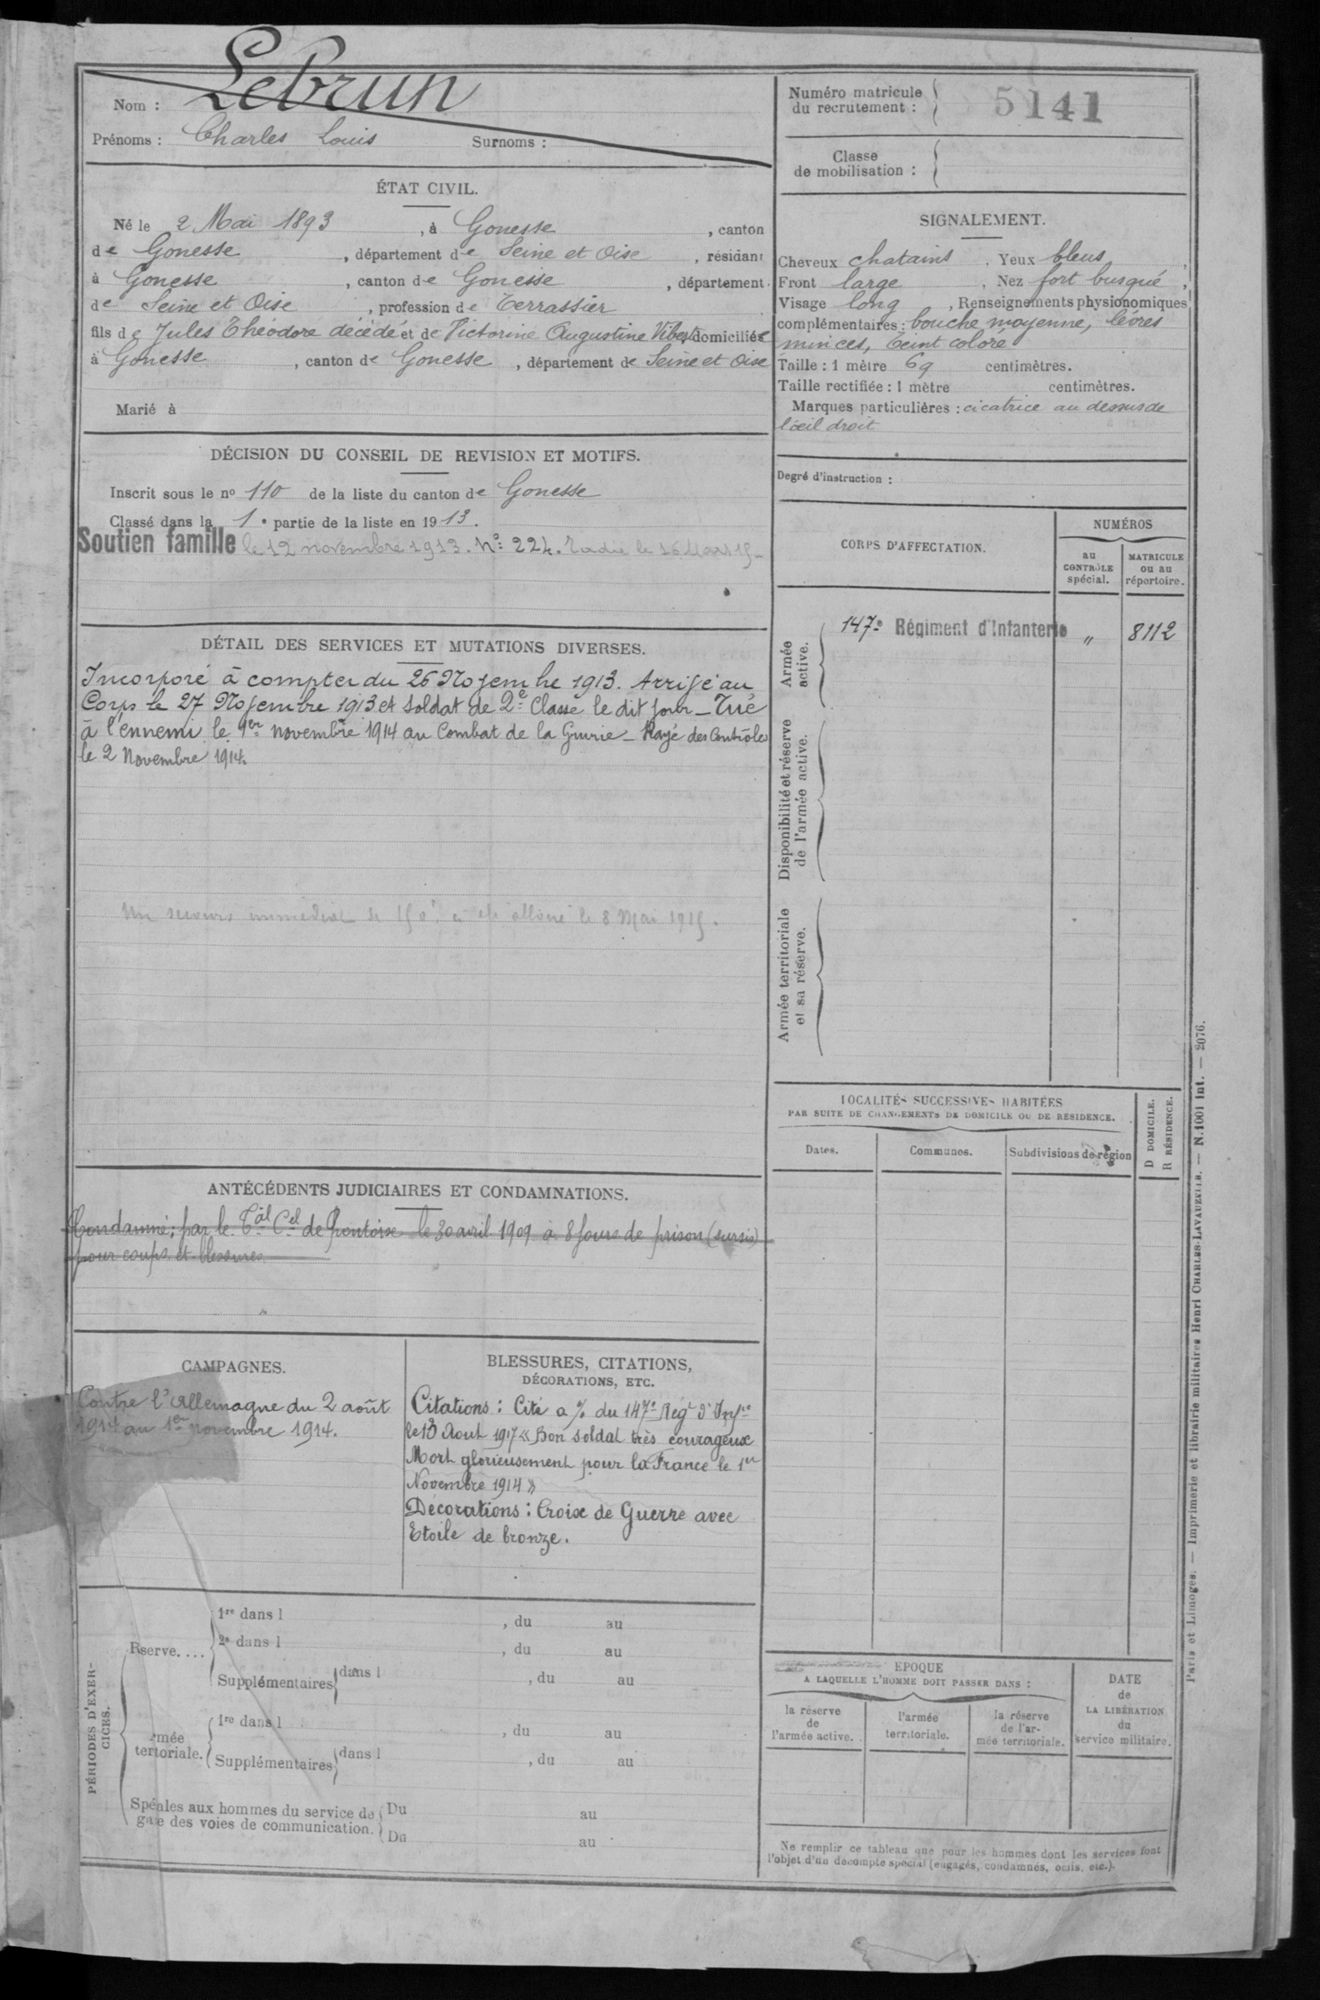 Nom : Lebrun
Prénoms : Charles Louis Surnoms :
ÉTAT CIVIL.
Né le 2 Mai 1893, à Gonesse, canton
de Gonesse, département de Seine et Oise, résidant
à Gonesse, canton de Gonesse, département
de Seine et Oise, profession de Terrassier
fils de Jules Théodore décédé et de Victorine Augustine domiciliés
à Gonesse, canton de Gonesse, département de Seine et Oise
Marié à
DÉCISION DU CONSEIL DE REVISION ET MOTIFS.
Inscrit sous le no 110 de la liste du canton de Gonesse
Classé dans la 1e partie de la liste en 1913.
Soutien famille le 12 novembre 1913. No: 224. Radié le 16 Mars 15
DÉTAIL DES SERVICES ET MUTATIONS DIVERSES.
Incorporé à compter du 26 Novembre 1913. Arrivé au
Corps le 27 Novembre 1913 et soldat de 2e Classe le dit jour_Tué
à l'ennemi le 1er novembre 1914 au Combat de la Grurie_ Rayé des Contrôles
le 2 Novembre 1914.
Un secours immédiat de 150f a été alloué le 8 Mai 1915.
ANTÉCÉDENTS JUDICIAIRES ET CONDAMNATIONS.
Condamné; par le Tal Cel de Pontoise le 30 avril 1909 à 8 jours de prison (sursis)
pour coups et blessures
CAMPAGNES.
Contre l'Allemagne du 2 août
1914 au 1er novembre 1914.
BLESSURES, CITATIONS,
DÉCORATIONS, ETC.
Citations : Cité a % du 147e Regt d'Infie
le 13 Aout 1917 « Bon soldat très courageux
Mort glorieusement pour la France le 1er
Novembre 1914 »
Décorations : Croix de Guerre avec
Etoile de bronze.
PÉRIODES D'EXER-
CICES.
Rserve....
1re dans l , du au
2e dans l , du au
Supplémentaires dans l , du au
mée
tertoriale.
1re dans l , du au
Supplémentaires dans l , du au
Spéales aux hommes du service de
gae des voies de communication.
Du au
Du au
Numéro matricule
du recrutement : 5141
Classe
de mobilisation :
SIGNALEMENT.
Cheveux chatains. Yeux bleus,
Front large, Nez fort busqué,
Visage long, Renseignements physionomiques
complémentaires : bouche moyenne, lèvres
minces, teint coloré
Taille : 1 mètre 69 centimètres.
Taille rectifiée : 1 mètre centimètres.
Marques particulières : cicatrice au dessus de
l'oeil droit
Degré d'instruction :
CORPS D'AFFECTATION.
NUMÉROS
au
CONTRÔLE
spécial.
MATRICULE
ou au
répertoire.
Armée
active.
147e Régiment d'Infanterie " 8112
Disponibilité et réserve
de l'armée active.
Armée territoriale
et sa réserve.
LOCALITÉS SUCCESSIVES HABITÉES
PAR SUITE DE CHANGEMENTS DE DOMICILE OU DE RÉSIDENCE.
D DOMICILE.
R RÉSIDENCE.
Dates.
Communes.
Subdivisions de région
EPOQUE
A LAQUELLE L'HOMME DOIT PASSER DANS :
DATE
de
LA LIBÉRATION
du
service militaire.
la réserve
de
l'armée active.
l'armée
territoriale.
la réserve
de l'ar-
mée territoriale.
Ne remplir ce tableau que pour les hommes dont les services font
l'objet d'un décompte spécial (engagés, condamnés, omis, etc.).
Paris et Limoges. — Imprimerie et librairie militaires Henri CHARLES-LAVAUZELLE. — N. 1001 int. — 2076.